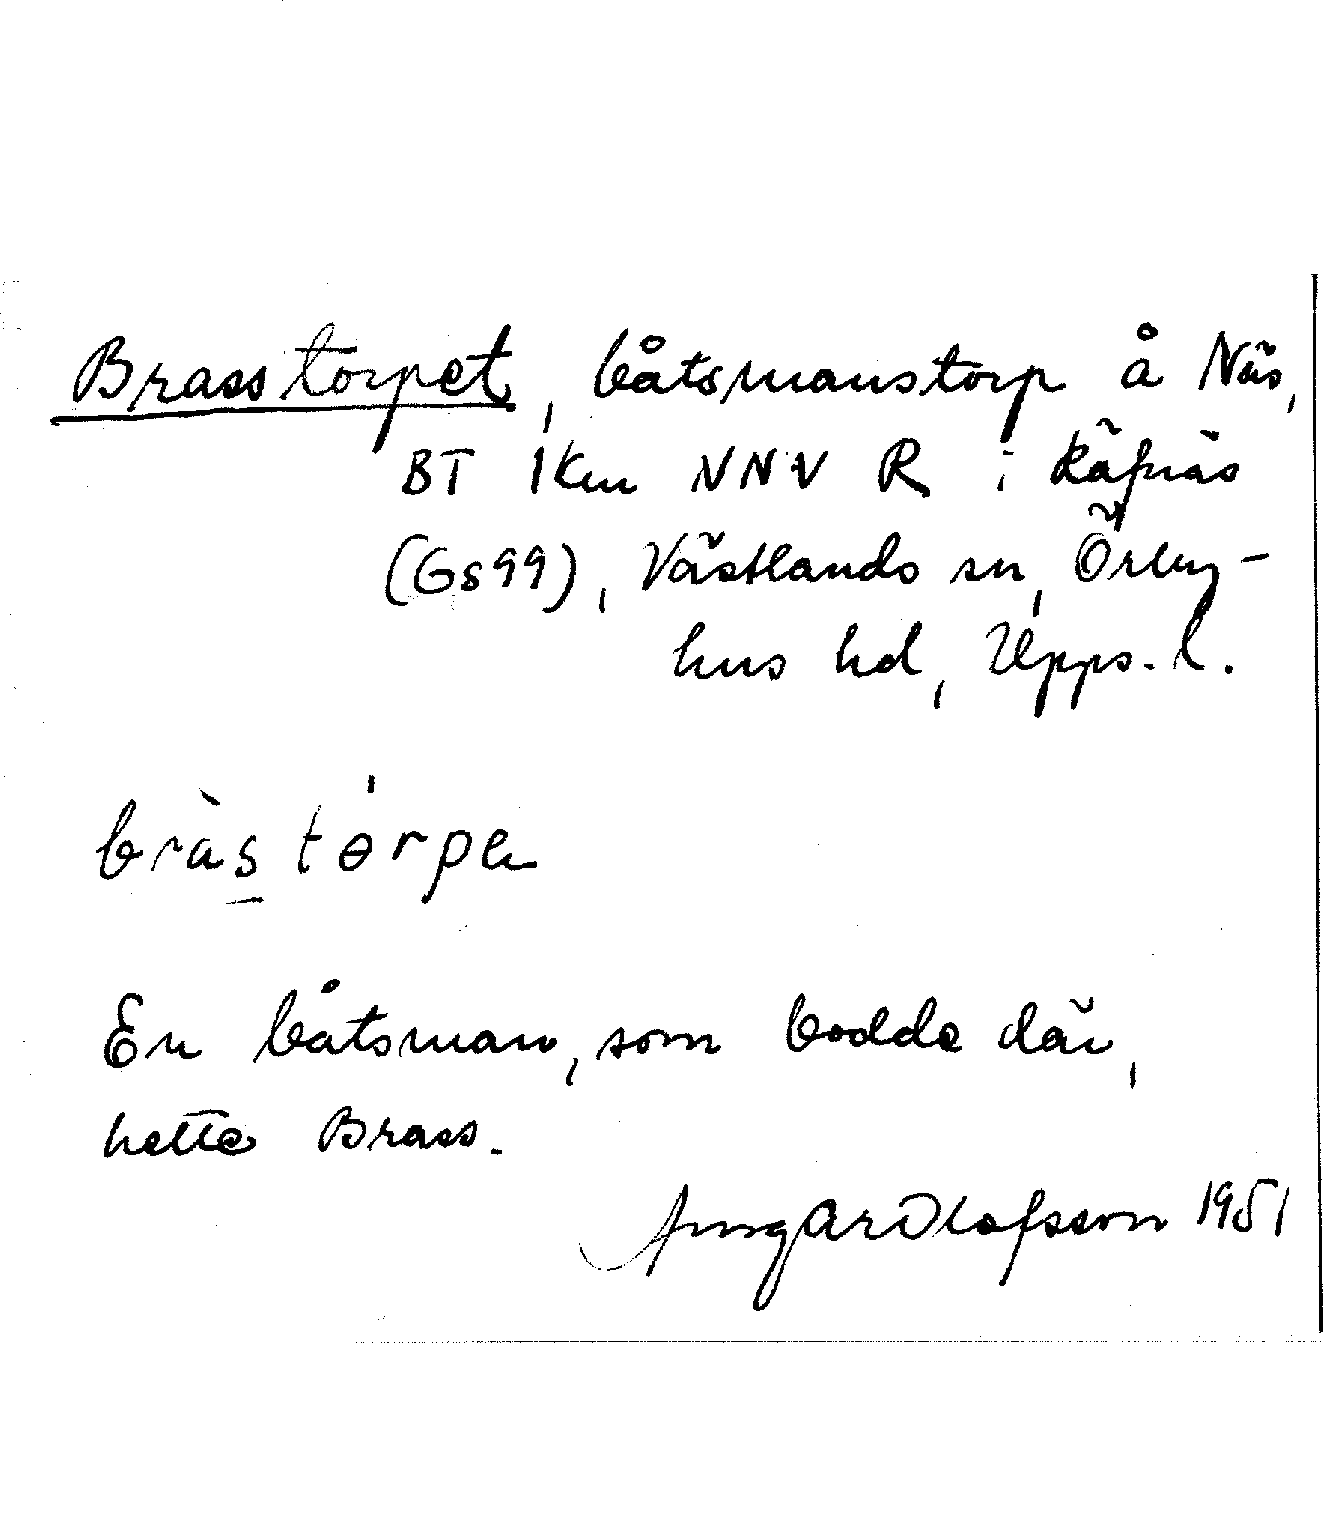 Brasstorpet, båtsmanstorp å Näs,
BT 1 km NNV R i Räfnäs
(Gs 99), Västlands sn, Örby-
hus hd, Upps. l.
bràs tɵ́rpa
En båtsman, som bodde där,
hette Brass.
Olofsson 1951